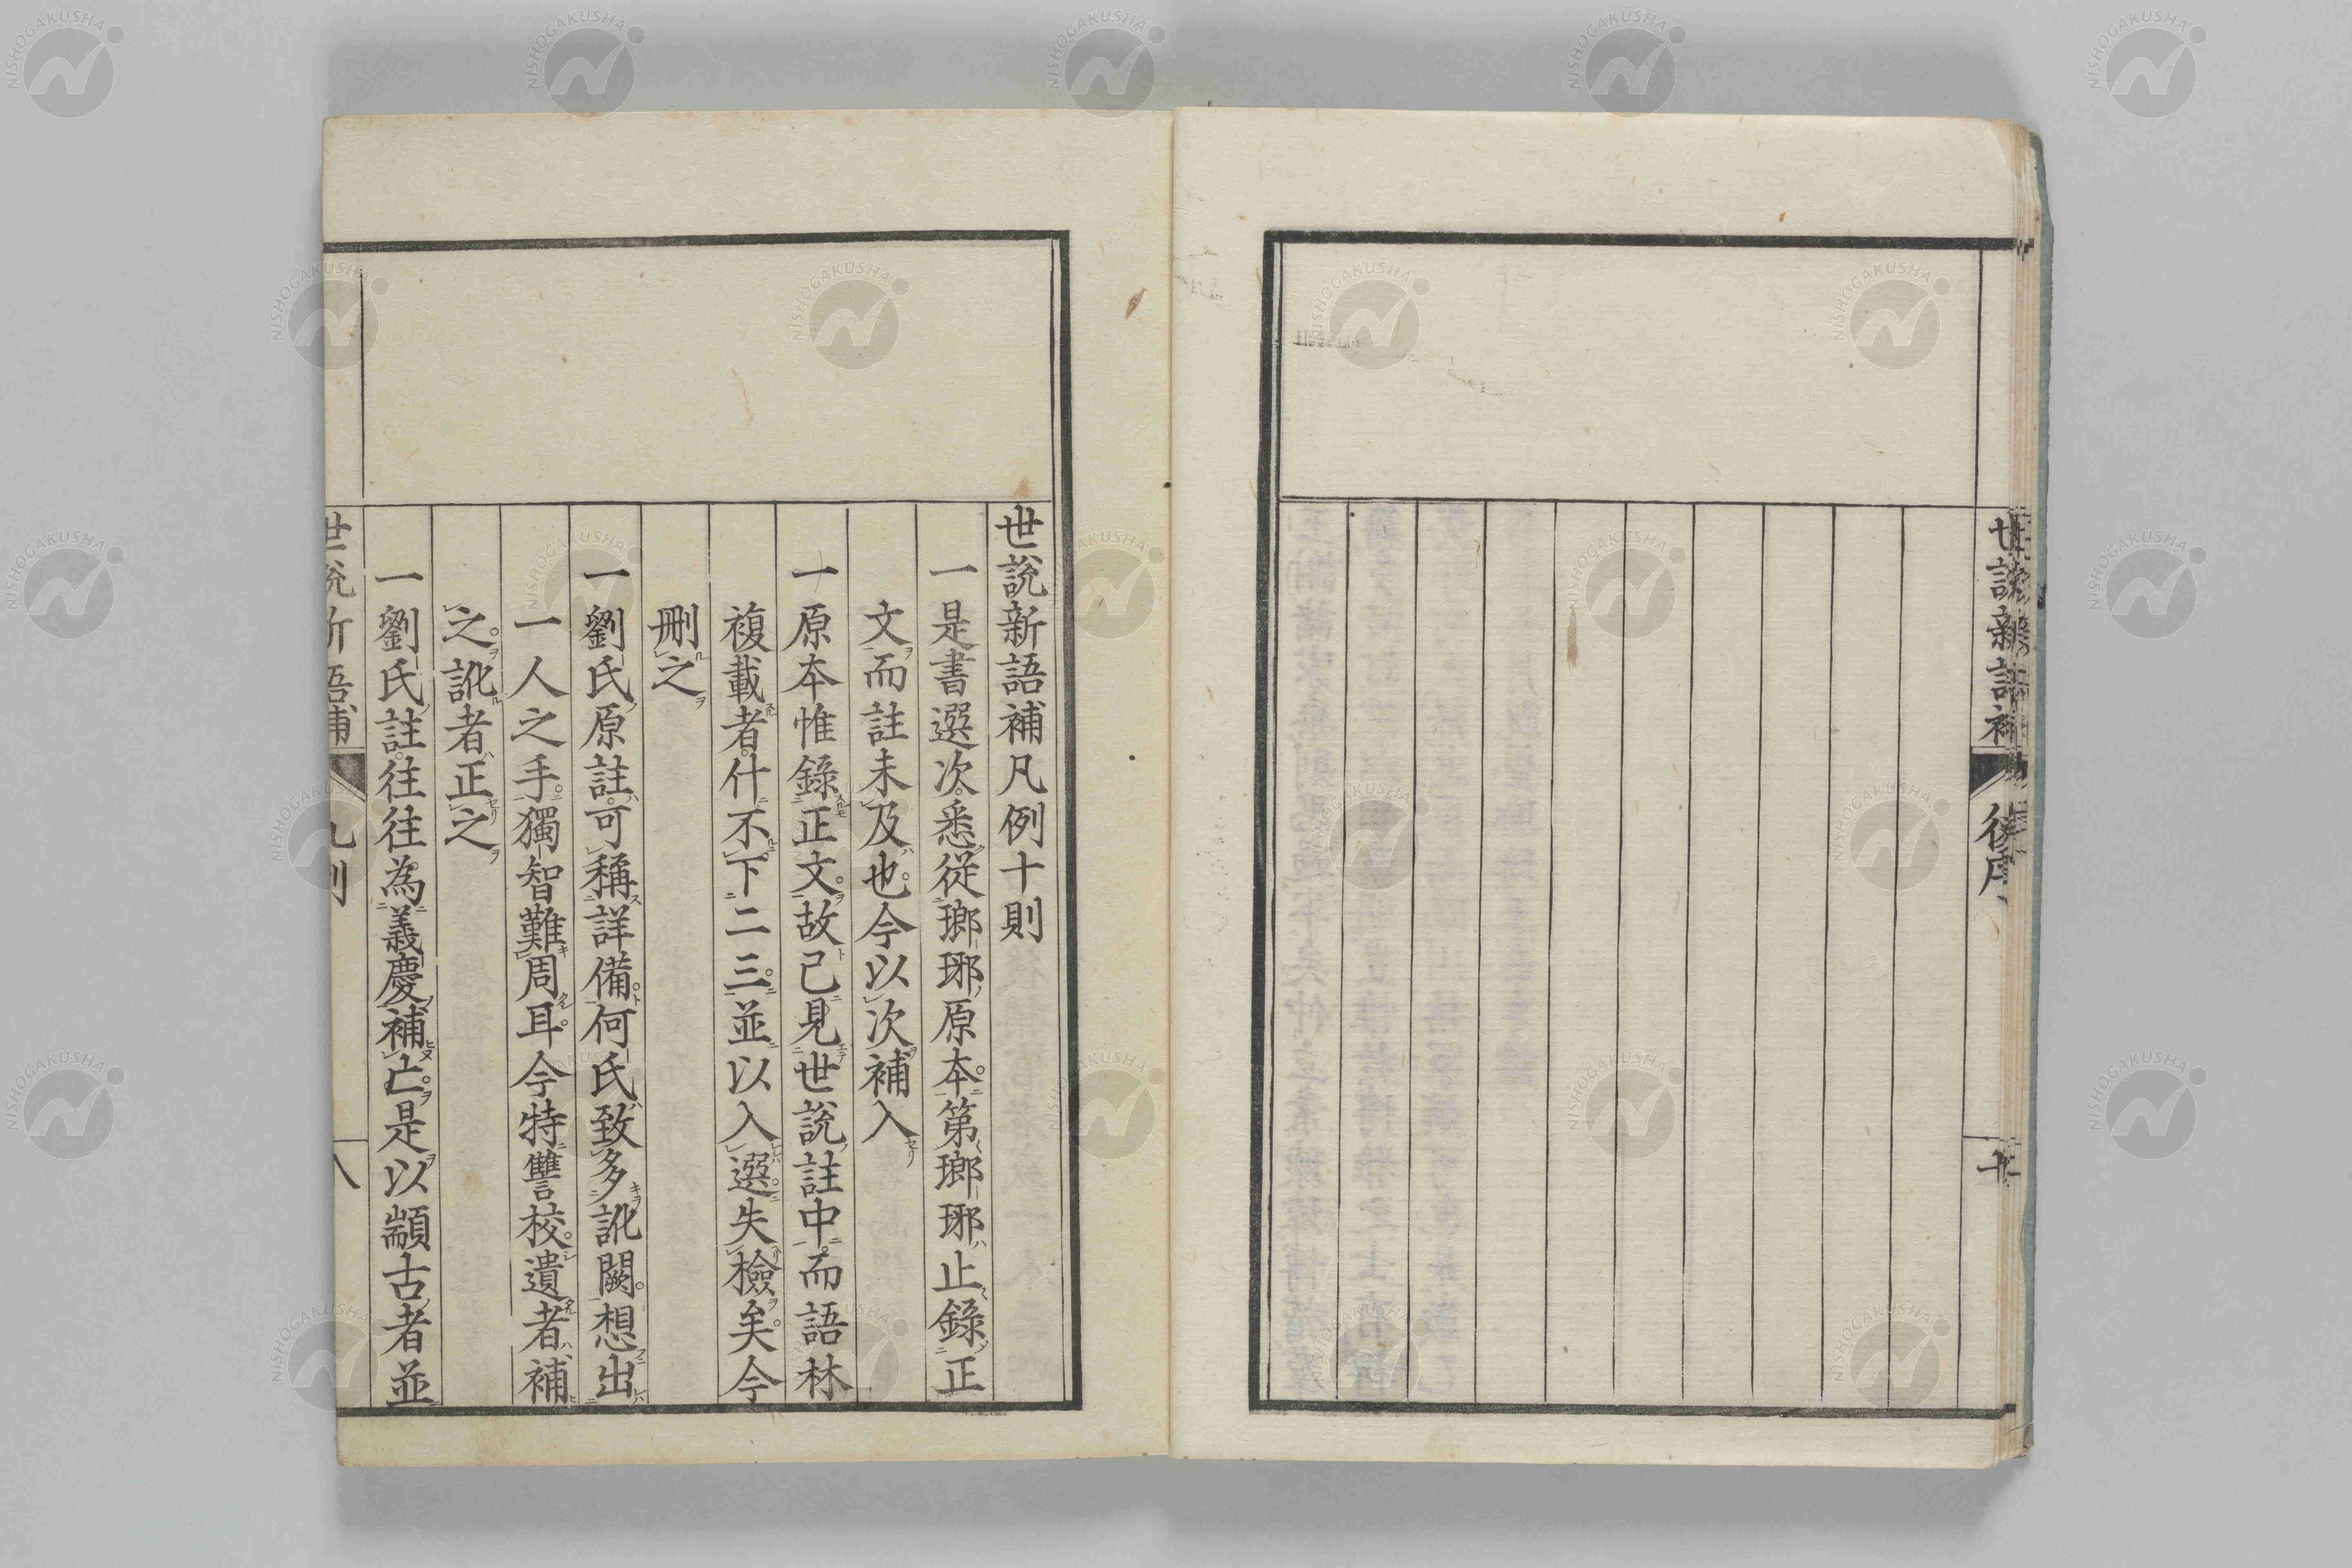 世說新語補
後序
世說新語補凡例十則
一是書選次悉從瑯琊原本第瑯琊止錄正
文而註未及也今以次補入
一原本惟錄正文故已見世說註中而語林
複載者什不下二三並以入選失檢矣今
刪之
一劉氏原註可稱詳備何氏致多訛闕想出
一人之手獨智難周耳今特讐校遺者補
之訛者正之
一劉氏註往往為義慶補亡是以顓古者並
世說新語補
凡例
八
NISHOGAKUSHA